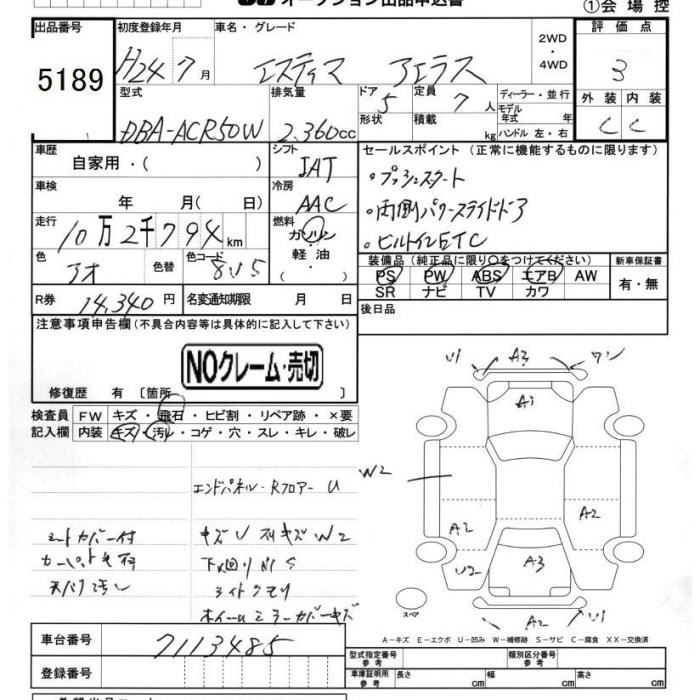 オークション出品申込書
①会場控
出品番号
5189
初度登録年月
H24年7月
車名・グレード
エスティマ アエラス
2WD
・
4WD
評価点
3
外装 内装
C C
型式
DBA-ACR50W
排気量
2,360cc
ドア
5
形状
定員
7人
積載
kg
ディーラー・並行
モデル
年式 年
ハンドル 左・右
車歴
自家用・( )
シフト
IAT
セールスポイント(正常に機能するものに限ります)
・プッシュスタート
・両側パワースライドドア
・ビルトインETC
車検
年 月( 日)
冷房
AAC
走行
10万2千794km
燃料
ガソリン
軽油
色
アオ
色替
色コード
8V5
装備品(純正品に限り○をつけてください)
PS PW ABS エアB AW
SR ナビ TV カワ
新車保証書
有・無
R券
14,340円
名変通知期限 月 日
後日品
注意事項申告欄(不具合内容等は具体的に記入して下さい)
NOクレーム・売切
修復歴 有[箇所 ]
検査員
記入欄
FW キズ・飛石・ヒビ割・リペア跡・×要
内装 キズ・汚レ・コゲ・穴・スレ・キレ・破レ
エンドパネル・Rフロアー U
シートカバー付
カーペット
天バリ汚レ
キズU スリキズ W2
下廻りサビS
ライトクモリ
ホイールミラーカバーキズ
U1 A3 ワン
A1
W2
A2 A2
U2 A3
A2 U1
スペア
A-キズ E-エクボ U-凹み W-補修跡 S-サビ C-腐食 XX-交換済
車台番号
7113485
登録番号
型式指定番号
参考
類別区分番号
参考
車庫証明用
参考
長さ cm 幅 cm 高さ cm